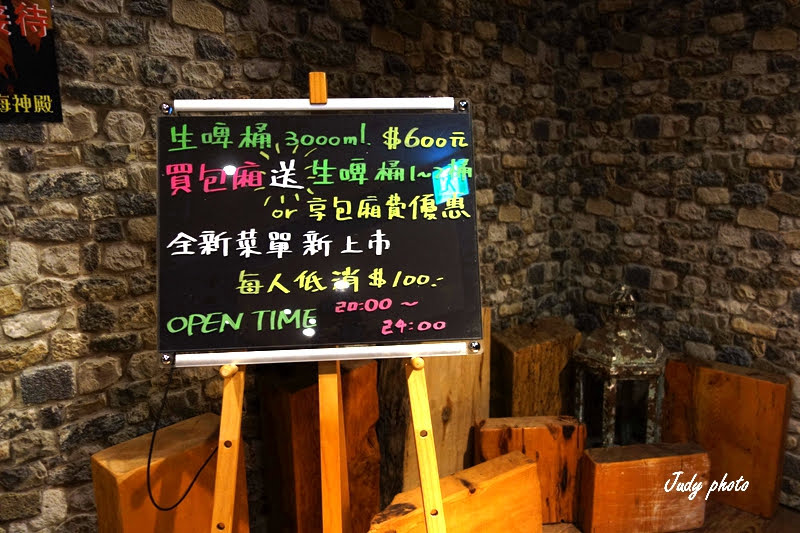 接待
海神殿
生啤桶 3000ml $600元
買包廂送生啤桶1~2桶
or 享包廂費優惠
全新菜單新上市
每人低消$100.-
OPEN TIME 20:00~
24:00
Judy photo